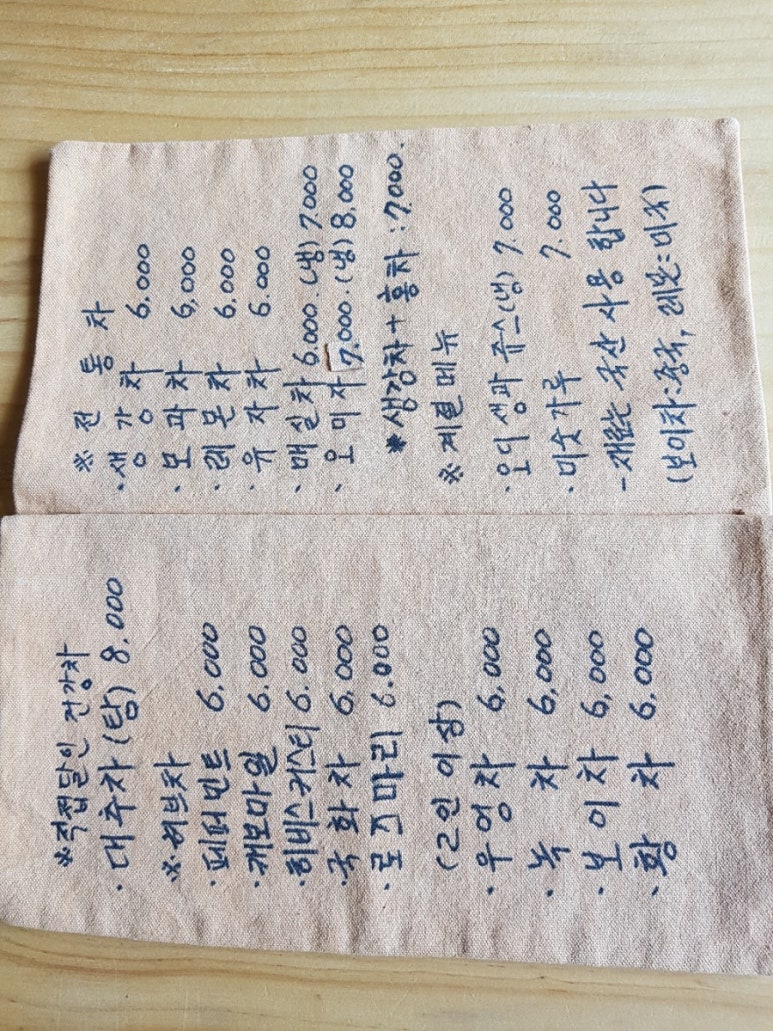 ※ 직접달인 건강차
· 대추차 (탕) 8,000
※ 허브차
· 페퍼민트 6,000
· 캐모마일 6.000
· 히비스커스티 6.000
· 국화차 6,000
· 로즈마리 6.000
(2인 이상)
· 우엉차 6,000
· 녹차 6,000
· 보이차 6,000
· 황차 6.000
※ 전통차
· 생강차 6,000
· 모과차 6,000
· 레몬차 6,000
· 유자차 6.000
· 매실차 6.000. (냉) 7.000
· 오미자 7.000. (냉) 8,000
* 생강차 + 홍차 : 7.000.
※ 계절메뉴
· 오디 생과 쥬스(냉) 7.000
· 미숫가루 7.000
- 재료는 국산 사용 합니다
(보이차:중국, 레몬:미국)